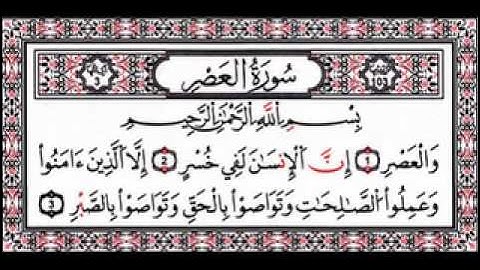 سُورَةُ الْعَصْرِ
بِسْمِ اللَّهِ الرَّحْمَٰنِ الرَّحِيمِ
وَالْعَصْرِ ١ إِنَّ الْإِنسَانَ لَفِي خُسْرٍ ٢ إِلَّا الَّذِينَ ءَامَنُوا
وَعَمِلُوا الصَّالِحَاتِ وَتَوَاصَوْا بِالْحَقِّ وَتَوَاصَوْا بِالصَّبْرِ ٣